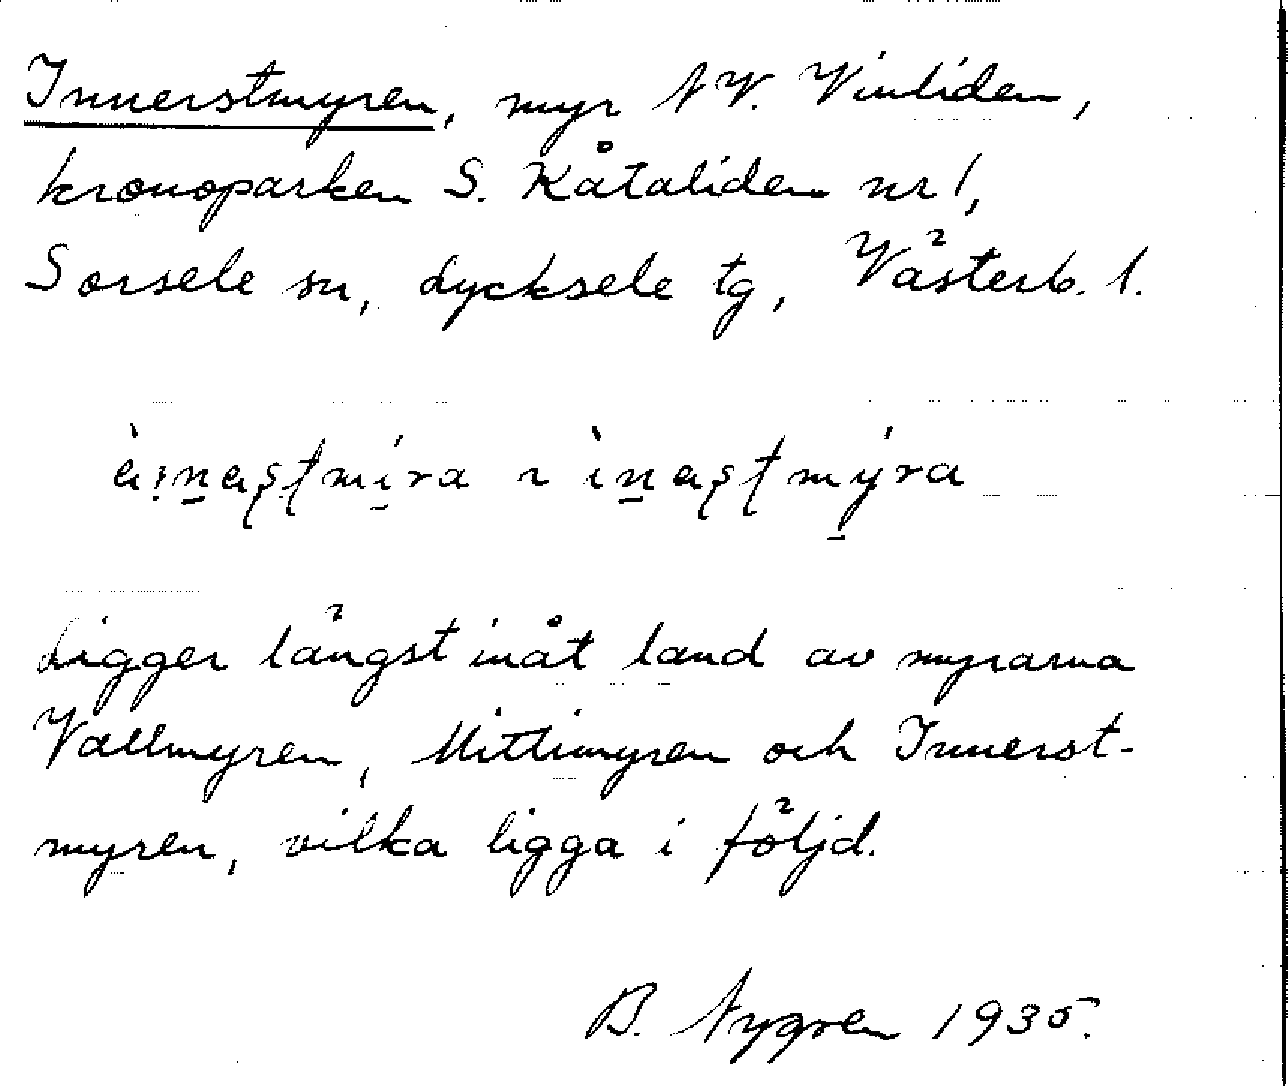 Innerstmyren, myr NV. Vinliden,
kronoparken S. Kåtaliden nr 1,
Sorsele sn, Lycksele tg, Västerb. l.
Ligger längst inåt land av myrarna
Vallmyren, Mittimyren och Innerst-
myren, vilka ligga i följd.
B. Nygren 1935.